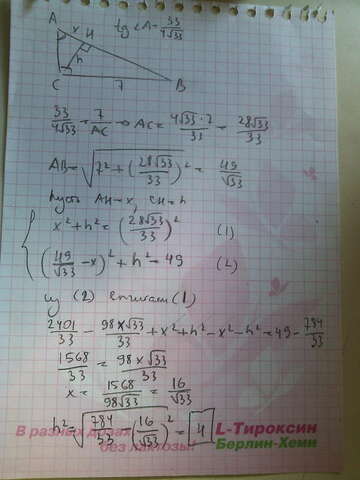 A
x
H
tg∠A=33/4√33
h
C
7
B
33/4√33 = 7/AC => AC = 4√33·7/33 = 28√33/33
AB = √(7² + (28√33/33)²) = 49/√33
Пусть AH=x, CH=h
x²+h² = (28√33/33)² (1)
(49/√33 -x)² + h² = 49 (2)
из (2) вычитаем (1)
2401/33 - 98x√33/33 + x²+h²-x²-h² = 49 - 784/33
1568/33 = 98x√33/33
x = 1568/98√33 = 16/√33
h² = √(784/33 (16/√33)²) = 4
В разных дозах
без лактозы!
L-Тироксин
Берлин-Хеми